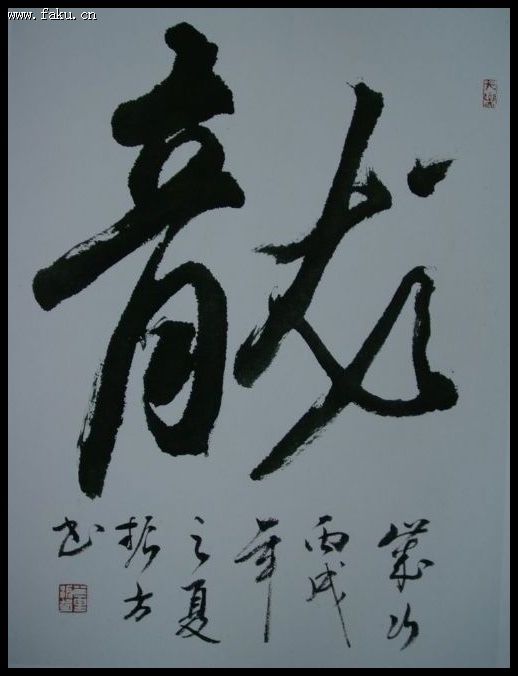 www.faku.cn
龍
歲次
丙戌
年
之夏
振方
书